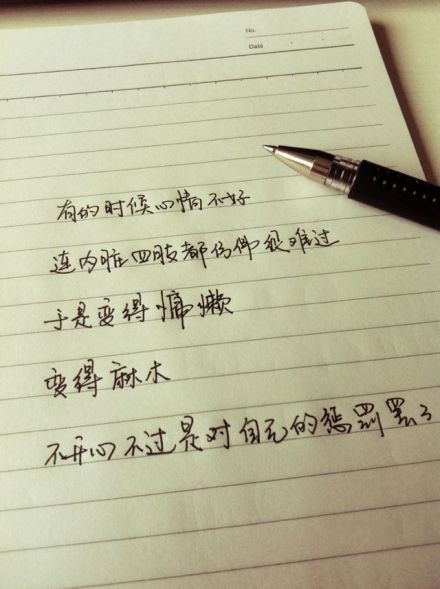 No.
Date
有的时候心情不好
连内脏四肢都仿佛很难过
于是变得慵懒
变得麻木
不开心不过是对自己的惩罚罢了